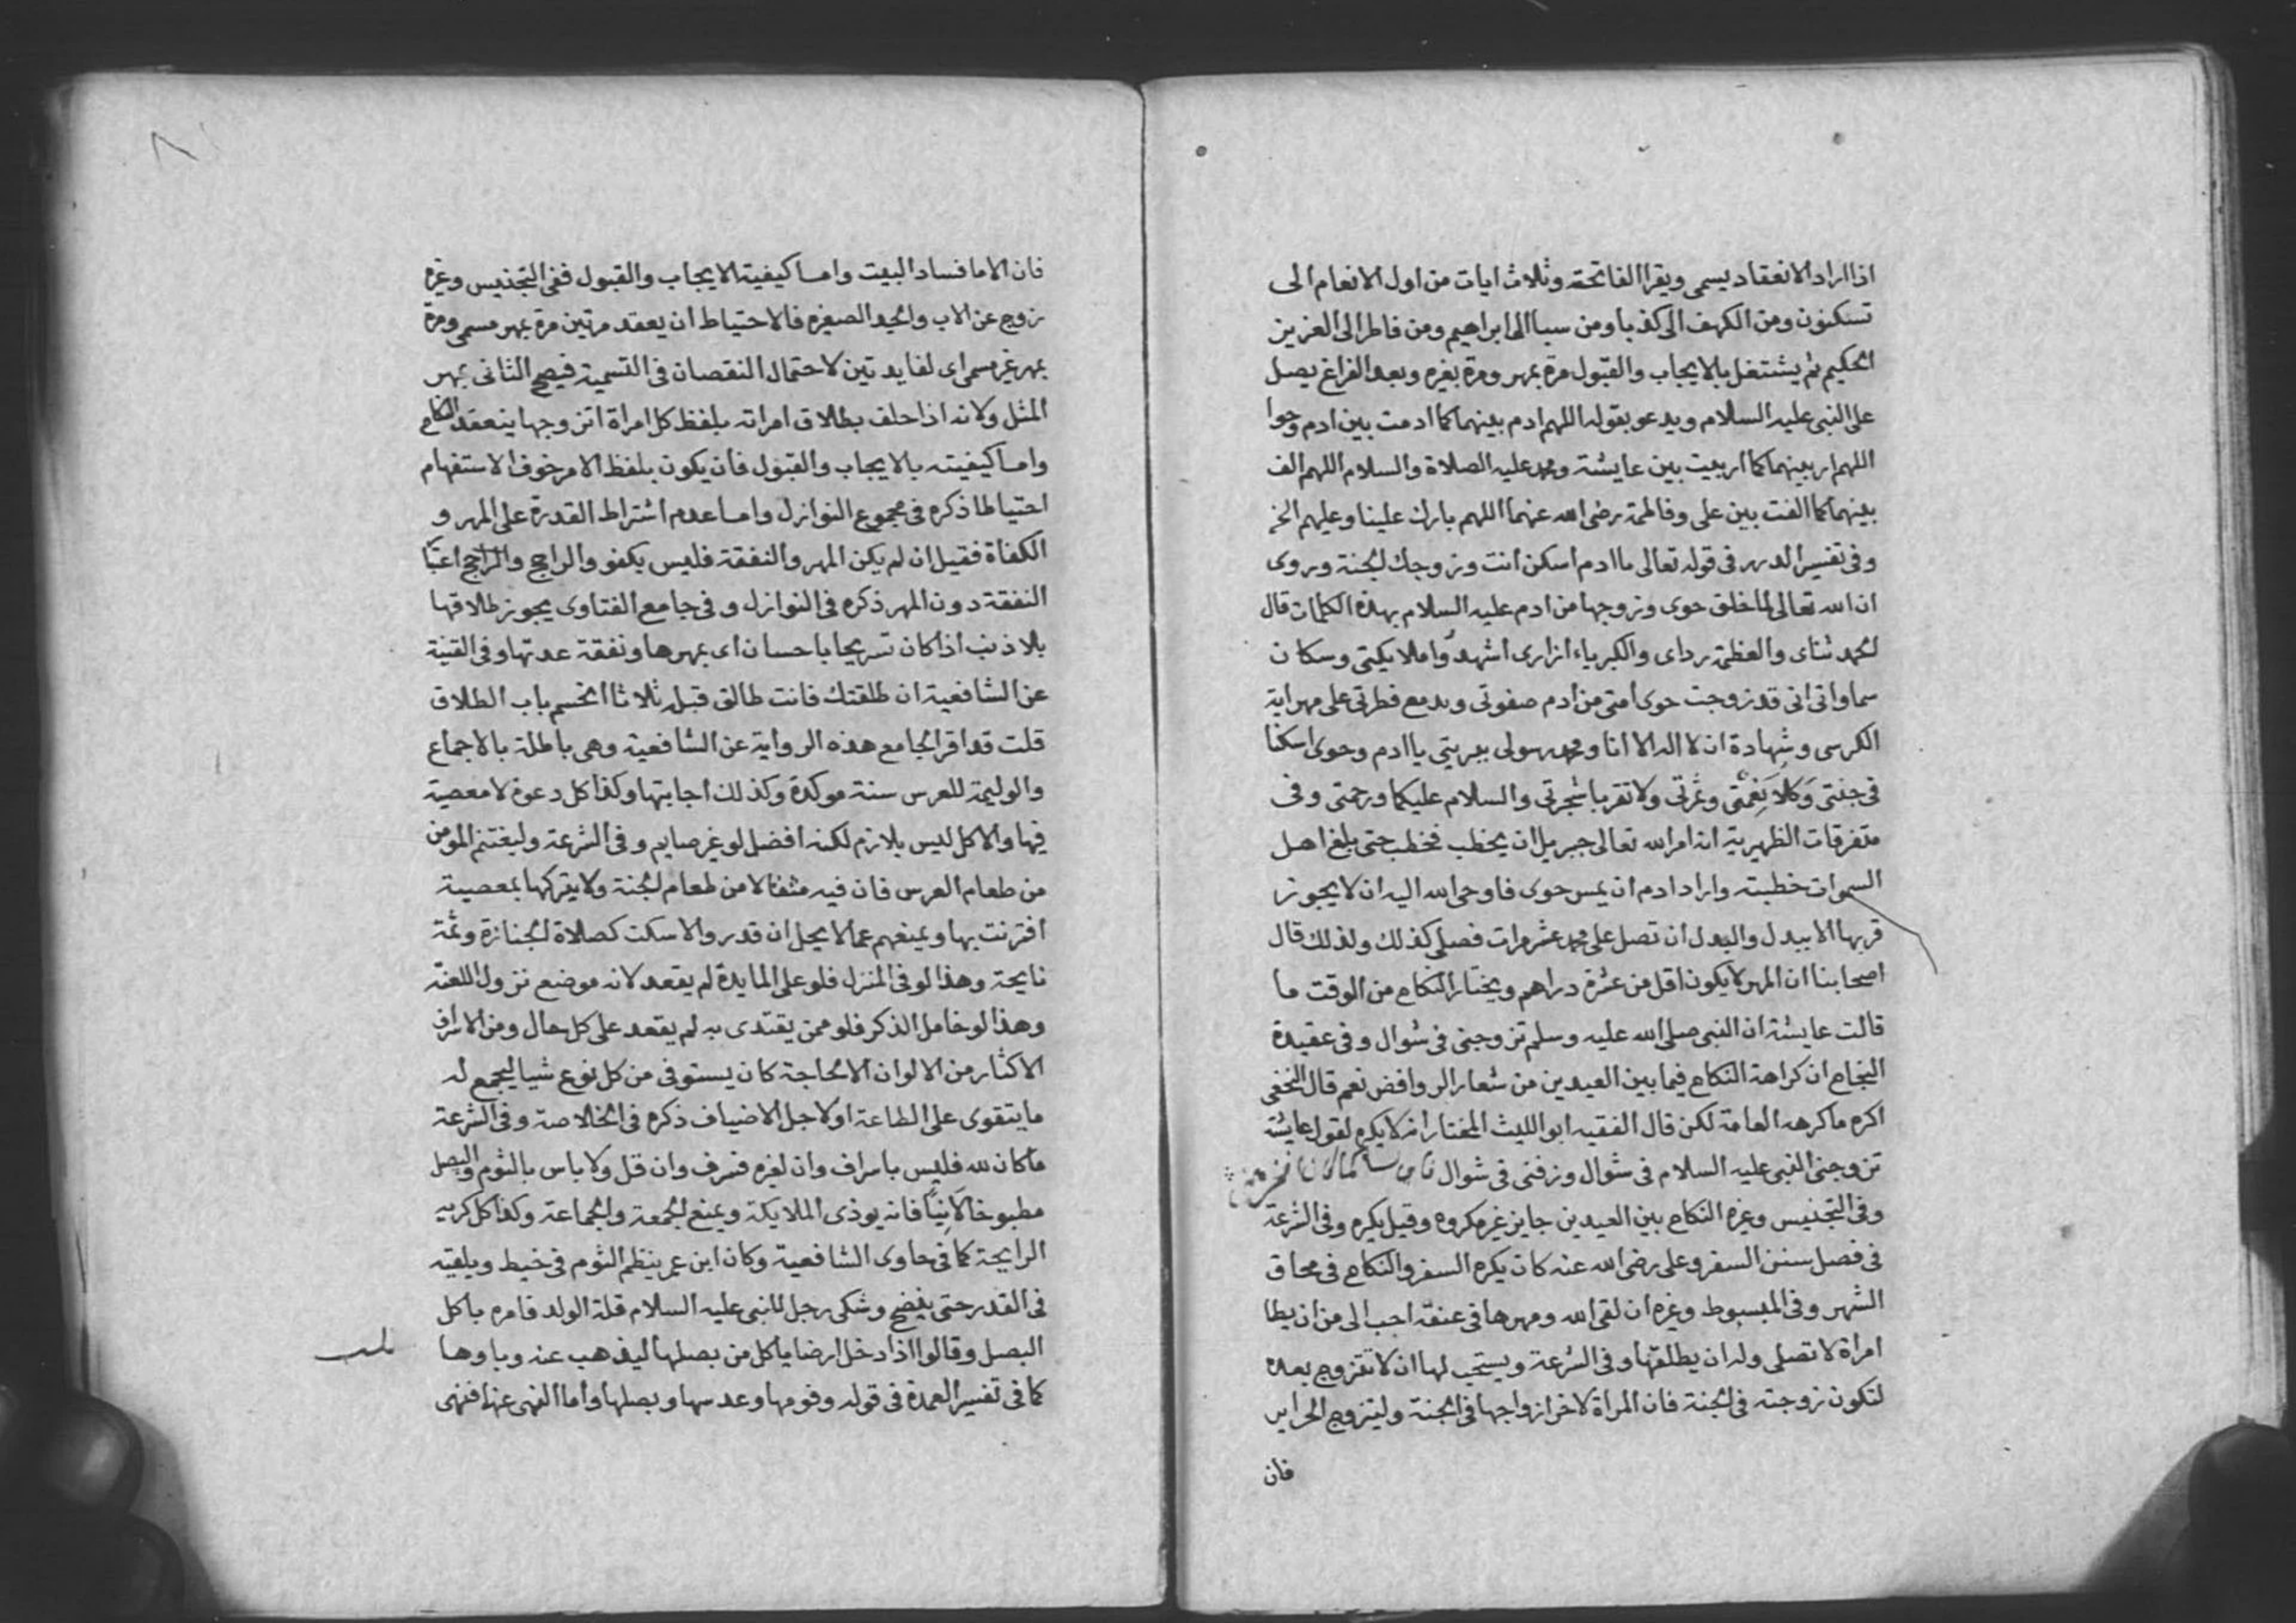 اذا اراد الانعقاد يسمى ويقرا الفاتحة وثلاث ايات من اول الانعام الى
تسكنون ومن الكهف الى كذبا ومن سبا الى ابراهيم ومن فاطر الى العزيز
الحكيم ثم يشتغل بالايجاب والقبول مرة بمهر ومرة بغيره وبعد الفراغ يصل
على النبى عليه السلام ويدعو بقوله اللهم ادم بينهما كما ادمت بين ادم وحوا
اللهم ار بينهما كما اربيت بين عايشة ومحمد عليه الصلاة والسلام اللهم الف
بينهما كما الفت بين على وفاطمة رضى الله عنهما اللهم بارك علينا وعليهم الخ
وفى تفسير الدرر فى قوله تعالى ياادم اسكن انت وزوجك الجنة وروى
ان الله تعالى لما خلق حوى وزوجها من ادم عليه السلام بهذه الكلمات قال
الحمد ثناى والعظمة رداى والكبرياء ازارى اشهدوا ملايكتى وسكان
سماواتى انى قد زوجت حوى امتى من ادم صفوتى وبدمع فطرتى على مهر اية
الكرسى وشهادة ان لا اله الا انا ومحمد رسولى ببريتى ياادم وحوى اسكنا
فى جنتى وكلا نعمتى وثمرتى ولا تقربا شجرتى والسلام عليكما ورحمتى وفى
متفرقات الظهيرية انه امر الله تعالى جبريل ان يخطب فخطب حتى بلغ اهل
السموات خطبته واراد ادم ان يمس حوى فاوحى الله اليه ان لا يجوز
قربها الا ببدل والبدل ان تصل على محمد عشر مرات فصلى كذلك ولذلك قال
اصحابنا ان المهر لا يكون اقل من عشرة دراهم ويختار النكاح من الوقت ما
قالت عايشة ان النبى صلى الله عليه وسلم تزوجنى فى شوال وفى عقيدة
النجاح ان كراهة النكاح فيما بين العيدين من شعار الروافض نعم قال النخعى
اكره ما كرهه العامة لكن قال الفقيه ابو الليث المختار انه لا يكره لقول عايشة
تزوجنى النبى عليه السلام فى شوال وزفنى فى شوال
وفى التجنيس وغيره النكاح بين العيدين جايز غير مكروه وقيل يكره وفى الشرعة
فى فصل سنن السفر وعلى رضى الله عنه كان يكره السفر والنكاح فى محاق
الشهر وفى المبسوط وغيره ان لقى الله ومهرها فى عنقه احب الى من ان يطا
امراة لا تصلى وله ان يطلقها وفى الشرعة ويستحب لها ان لا تتزوج بعده
لتكون زوجته فى الجنة فان المراة لاخر ازواجها فى الجنة وليتزوج الحراير
فان
فان الاما فساد البيت واما كيفية الايجاب والقبول ففى التجنيس وغيره
زوج عن الاب والجد الصغيره فالاحتياط ان يعقد مرتين مرة بمهر مسمى ومرة
بمهر غير مسمى اى لفايدتين لاحتمال النقصان فى التسمية فيصح الثانى بمهر
المثل ولانه اذا حلف بطلاق امراته بلفظ كل امراة اتزوجها ينعقد النكاح
واما كيفيته بالايجاب والقبول فان يكون بلفظ الامر خوف الاستفهام
احتياطا ذكره فى مجموع النوازل واما عدم اشتراط القدرة على المهر و
الكفاة فقيل ان لم يكن المهر والنفقة فليس بكفو والراجح والراجح اعتبا
النفقة دون المهر ذكره فى النوازل وفى جامع الفتاوى يجوز طلاقها
بلا ذنب اذا كان تسريحا باحسان اى بمهرها ونفقة عدتها وفى القنية
عن الشافعية ان طلقتك فانت طالق قبله ثلاثا انحسم باب الطلاق
قلت قد اقر الجامع هذه الرواية عن الشافعية وهى باطلة بالاجماع
والوليمة للعرس سنة موكدة وكذلك اجابتها وكذا كل دعوة لا معصية
فيها والاكل ليس بلازم لكنه افضل لو غير صايم وفى الشرعة وليغتنم المومن
من طعام العرس فان فيه مثقالا من طعام الجنة ولا يتركها بمعصية
اقترنت بها ويمنعهم عما لا يحل ان قدر والا سكت كصلاة الجنازة وثمة
نايحة وهذا لو فى المنزل فلو على المايدة لم يقعد لانه موضع نزول اللعنة
وهذا لو خامل الذكر فلو ممن يقتدى به لم يقعد على كل حال ومن الاسراف
الاكثار من الالوان الا لحاجة كان يستوفى من كل نوع شيا ليجمع له
ما يتقوى على الطاعة او لاجل الاضياف ذكره فى الخلاصة وفى الشرعة
ما كان لله فليس باسراف وان لغيره فسرف وان قل ولا باس بالثوم والبصل
مطبوخا لا نيا فانه يوذى الملايكة ويمنع الجمعة والجماعة وكذا كل كريه
الرايحة كما فى حاوى الشافعية وكان ابن عمر ينظم الثوم فى خيط ويلقيه
فى القدر حتى ينضج وشكى رجل للنبى عليه السلام قلة الولد فامره باكل
البصل وقالوا اذا دخل ارضا ياكل من بصلها ليذهب عنه وباوها
كما فى تفسير العمدة فى قوله وفومها وعدسها وبصلها واما النهى عنها فنهى